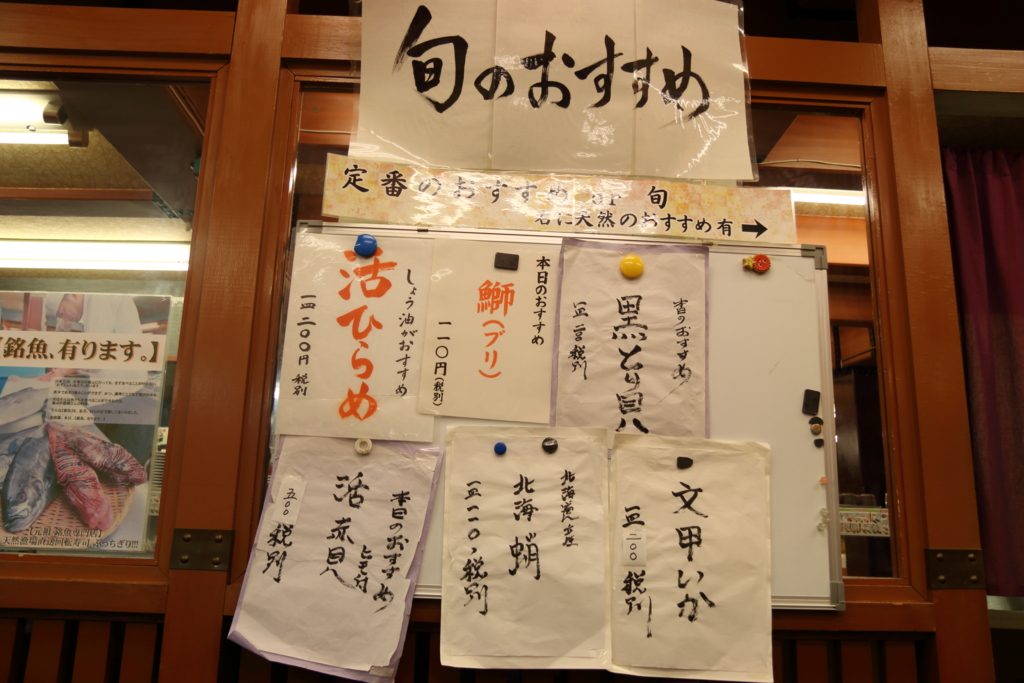 旬のおすすめ
定番のおすすめ or 旬
右に天然のおすすめ有→
しょう油がおすすめ
活ひらめ
一皿 二〇〇円 税別
本日のおすすめ
鰤(ブリ)
一一〇円(税別)
本日のおすすめ
黒とり貝
税別
本日のおすすめ
活赤貝
五〇〇 税別
北海蛸
一皿 一一〇、税別
文甲いか
一皿 二〇〇 税別
【銘魚、有ります。】
【元祖 銘魚専門店】
天然漁場直送回転寿司ぶっちぎり!!!